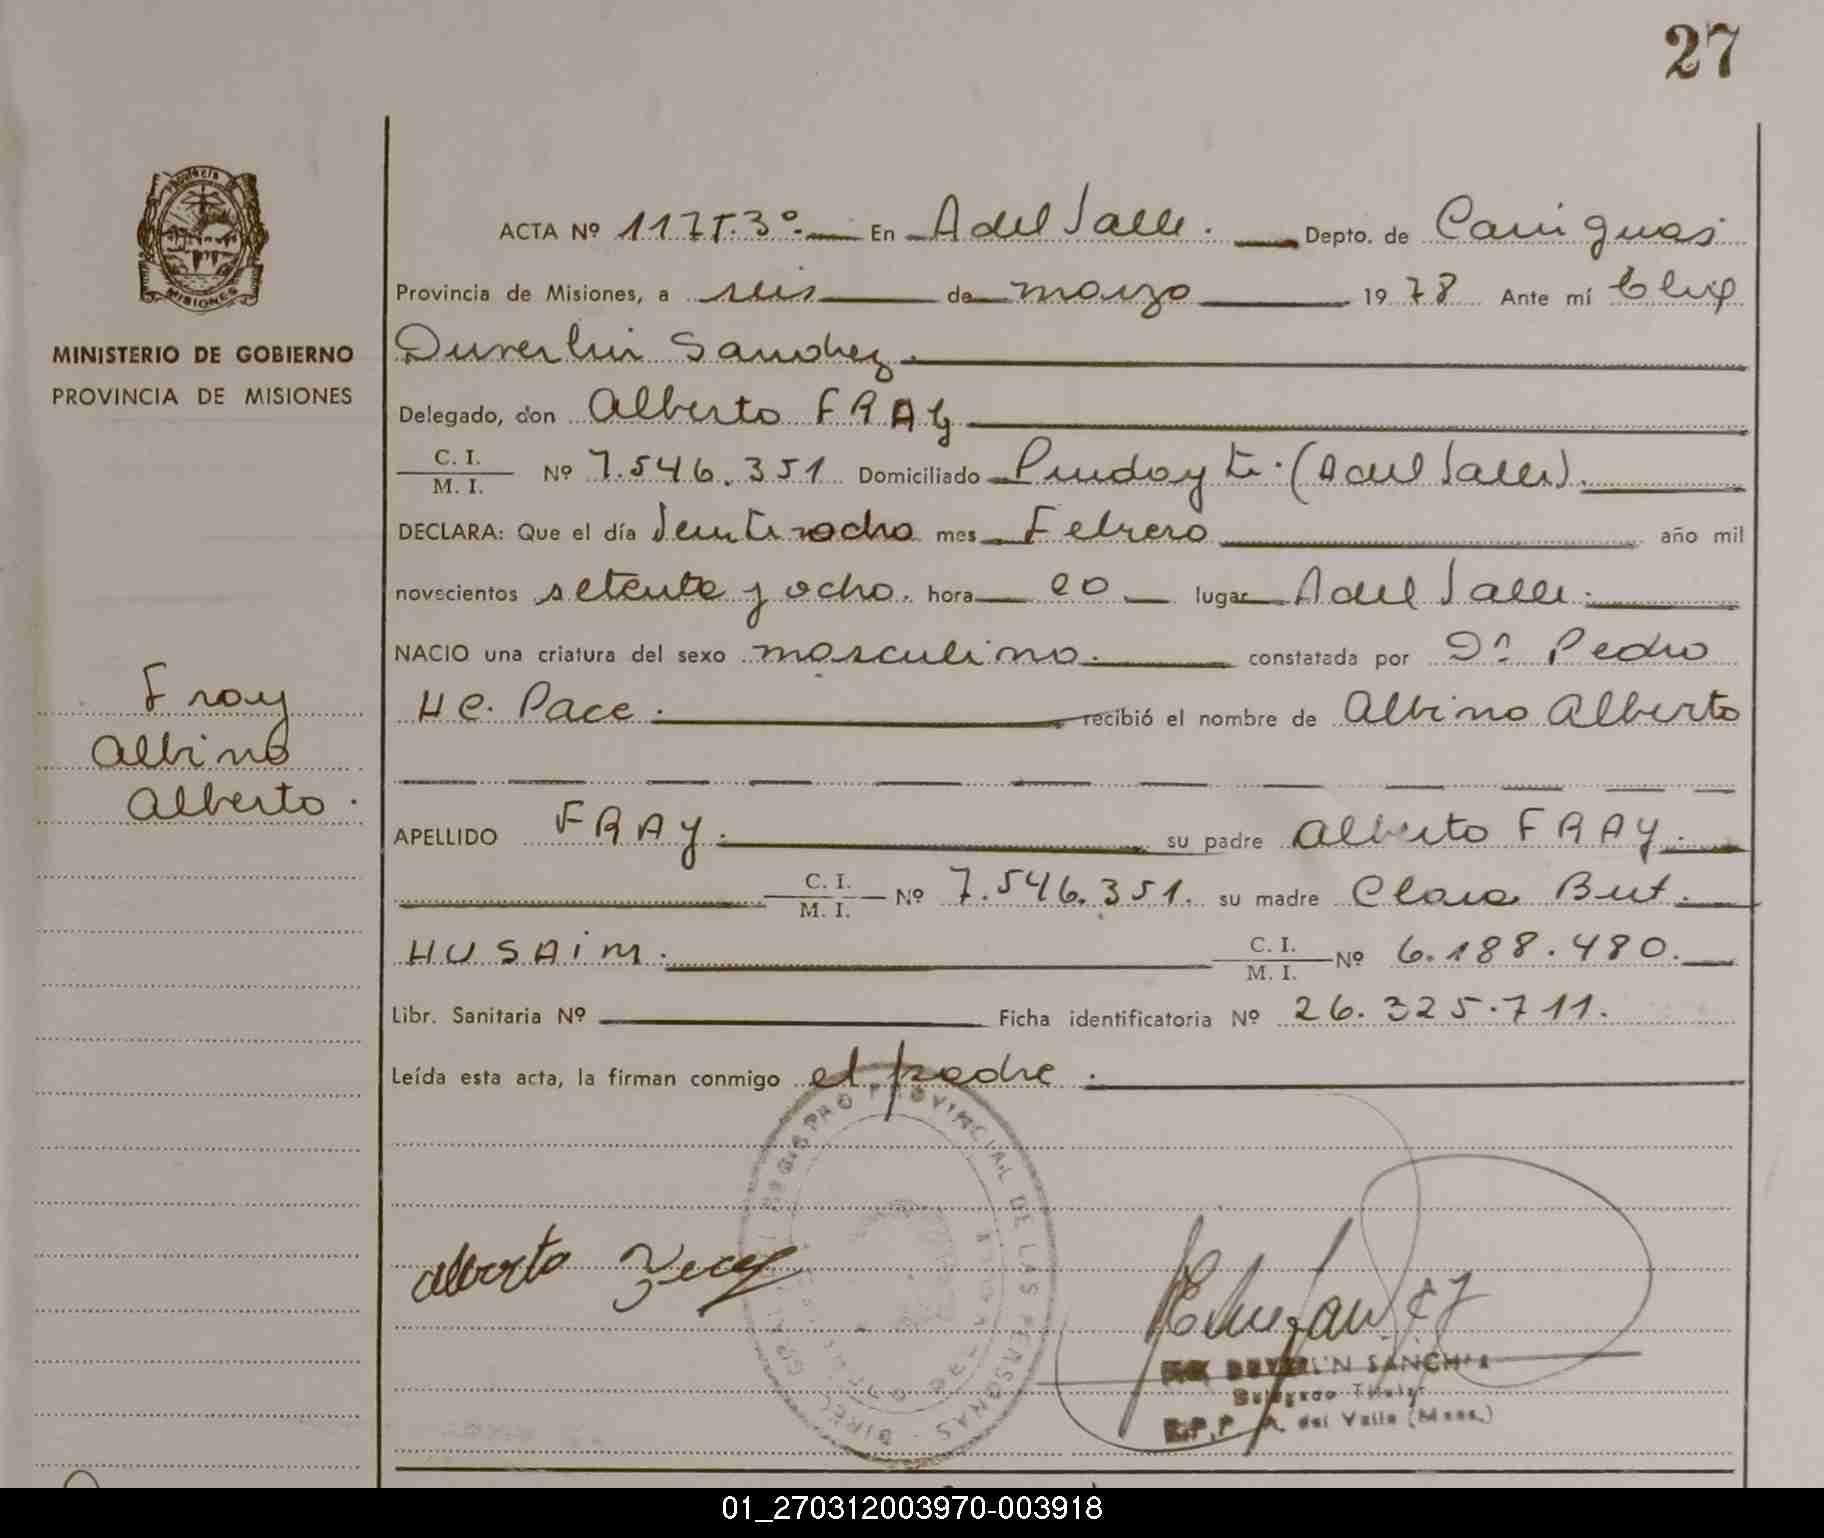 27
ACTA Nº 117T.3º. En A del Valle. Depto. de Cainguas
Provincia de Misiones, a seis de marzo 1978 Ante mí Elix
Duverlin Sanchez.
MINISTERIO DE GOBIERNO
PROVINCIA DE MISIONES
MISIONES
Delegado, don Alberto FRAY
C. I.
M. I. Nº 7.546.351 Domiciliado Pindayti. (A del Valle).
DECLARA: Que el día Veintiocho mes Febrero año mil
novecientos setenta y ocho. hora 20 lugar A del Valle.
NACIO una criatura del sexo masculino. constatada por Dn Pedro
HC. Pace. recibió el nombre de Albino Alberto
Fray
Albino
Alberto.
APELLIDO FRAY. su padre Alberto FRAY.
C. I.
M. I. Nº 7.546.351. su madre Clara But.
HUSAiM. C. I.
M. I. Nº 6.188.480.
Libr. Sanitaria Nº Ficha identificatoria Nº 26.325.711.
Leída esta acta, la firman conmigo el padre.
REGISTRO PROVINCIAL DE LAS PERSONAS
alberto
DUVERLIN SANCHEZ
Delegado Titular
R.P.P. A. del Valle (Mnes.)
01_270312003970-003918